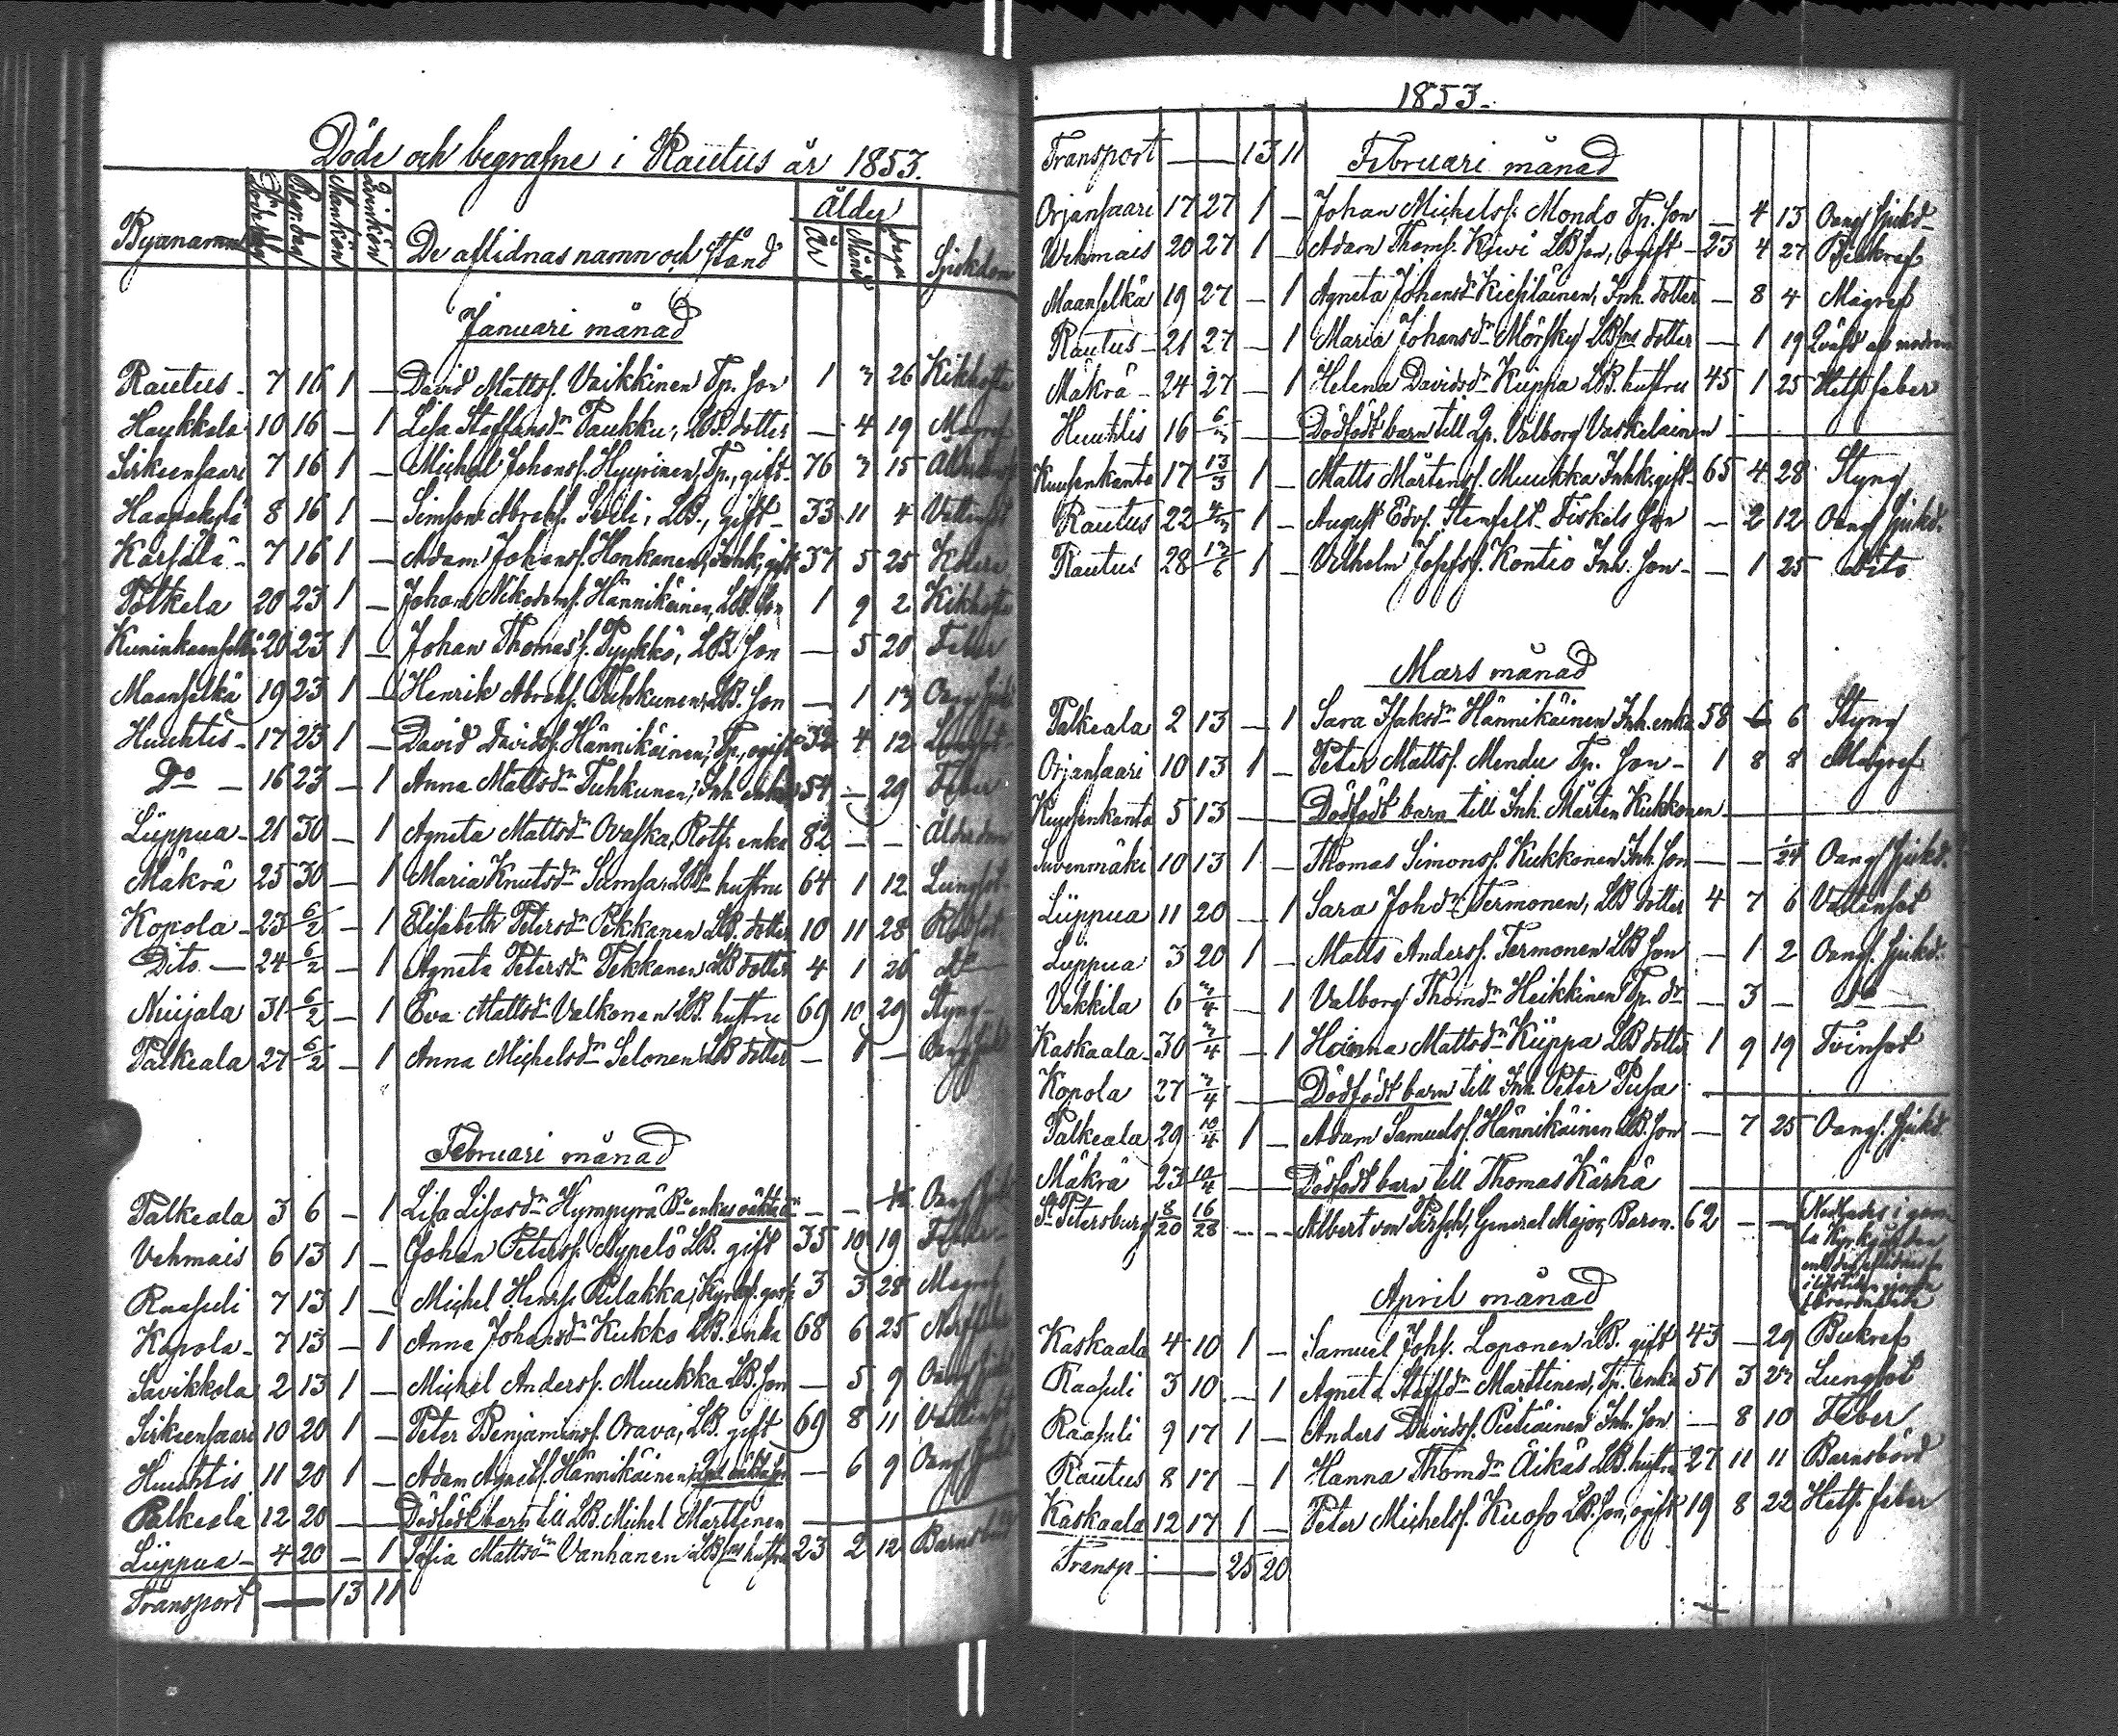 Döde och begrafne i Rautus år 1853.
Byanamn Dödedag Begr. dag Mankön Qvinkön De aflidnas namn och stånd Ålder År Månad dagar Sjukdom
Januari månad
Rautus - 7 16 1 — David Mattss. Vaikkinen Tp. son 1 3 26 Kikhosta
Haukkala 10 16 — 1 Lisa Staffansdr Paukku, LB. dotter — 4 19 Magref
Sirkeensaari 7 16 1 — Michel Johanss. Hyyrinen, Tp., gift - 76 3 15 Ålderdom
Haapakylä 8 16 1 — Simson Abrahs. LB., gift - 33 11 4 Vattusot
Karsala - 7 16 1 — Adam Johanss. Honkanen, Inhk, gift 37 5 25
Potkela 20 23 1 — Johan Nikodems. Hännikäinen, LB. son 1 9 2 Kikhosta
Kuninkaanselkä 20 23 1 — Johan Thomass. Pyykkö, LB. son — 5 20 Feber
Maanselkä 19 23 1 — Henrik Abrahs. Tuhkunen, LB. son — 1 13 Oang. sjukd
Huuhtis - 17 23 1 — David Davidss. Hännikäinen, Tp., ogift 32 4 12 Lungsot
Do — 16 23 — 1 Anna Mattsdr Tuhkunen, Inh. enka 54 — 29 Feber
Liippua - 21 30 — 1 Agneta Mattsdr Ovaska, Rotf. enka 82 — — Ålderdom
Mäkrä 25 30 — 1 Maria Knutsdr Samsa, LBs hustru 64 1 12 Lungsot
Kopola - 23 6/2 — 1 Elisabeth Petersdr Pekkanen LB. dotter 10 11 28 Rödsot
Dito — 24 6/2 — 1 Agneta Petersdr Pekkanen LB dotter 4 1 26 do
Niiijala 31 6/2 — 1 Eva Mattsdr Valkonen LB. hustru 69 10 29 Styng
Palkeala 27 6/2 — 1 Anna Michelsdr Selonen LB dotter — 1 — Oang. sjukd
Februari månad
Palkeala 3 6 — 1 Lisa Lisasdr Hympyrä Bs enkas oäkta dr — — Oang. sjukd
Vehmais 6 13 1 — Johan Peterss. Nypelö LB. gift 35 10 19 Feber
Raasuli 7 13 1 — Michel Henrss. Pelakka, 3 3 28 Magref
Kopola - 7 13 — 1 Anna Johansdr Kukko LB. enka 68 6 25 Nerffeber
Savikkola 2 13 1 — Michel Anderss. Muukka LB. son — 5 9 Oang. sjukd
Sirkeensaari 10 20 1 — Peter Benjaminss. Orava, LB. gift 69 8 11 Vattusot
Huuhtis 11 20 1 — Adam Agnetss. Hännikäinen, oäkta son — 6 9 Oang. sjukd
Palkeala 12 20 — Dödfödt barn till LB. Michel Marttinen —
Liippua - 4 20 — 1 Sofia Mattsdr Vanhanen LBsns hustru 23 2 12 Barnsbörd
Transport — 13 11
1853.
Transport — 13 11 Februari månad
Orjansaari 17 27 1 — Johan Michelss. Mondo Tp. son — 4 13 Oang sjukd
Wehmais 20 27 1 — Adam Thomss. Kiwi LB son, ogift - 23 4 27 Bukref
Maanselkä 19 27 — 1 Agneta Johansdr Kiesiläinen, Inh. dotter — 8 4 Magref
Rautus - 21 27 — 1 Maria Johansdr Mörsky LBsns dotter — 1 19 Qväfd af modren
Mäkrä - 24 27 — 1 Helena Davidsdr Kiippa LB. hustru 45 1 25 Hets. feber
Huuhtis 16 6/3 — Dödfödt barn till Qp. Valborg Vaskelainen —
Kuusenkanta 17 13/3 1 — Matts Mårtenss. Muukka Inhk, gift - 65 4 28 Styng
Rautus 22 4/3 1 — August Edvs. Stenfelt Fiskals son — 2 12 Oang. sjukd.
Rautus 28 13/6 1 — Vilhelm Josefss. Kontio Inh. son - — 1 25 dito
Mars månad
Palkeala 2 13 — 1 Sara Isaksdr Hännikäinen Inh. enka 58 6 6 Styng
Orjansaari 10 13 1 — Peter Mattss. Mendu Tp. son - 1 8 8 Magref
Kuusenkanta 5 13 — Dödfödt barn till Inh. Mårten Kukkonen —
Suvenmäki 10 13 1 — Thomas Simonss. Kukkonen Inh. son — — 1/24 Oang. sjukd.
Liippua 11 20 — 1 Sara Johdr Termonen, LB dotter 4 7 6 Vattusot
Liippua 3 20 1 — Matts Anderss. Termonen LB son — 1 2 Oang. sjukd.
Vakkila 6 3/4 — 1 Valborg Thomdr Heikkinen Tp. dr — 3 — do
Kaskaala - 30 3/4 — 1 Hanna Mattsdr Kiippa LB dotter 1 9 19 Tvinsot
Kopola 27 3/4 — Dödfödt barn till Inh. Peter Pusa —
Palkeala 29 10/4 1 — Adam Samuelss. Hännikäinen LB. son — 7 25 Oang. sjukd
Mäkrä 23 10/4 — Dödfödt barn till Thomas Kärhä —
St. Petersburg 8/20 16/28 — Albert von Pirsch, General Major, Baron. 62 — — Nedsattes i gam-
la Kyrkogården
April månad
Kaskaala 4 10 1 — Samuel Johs. Loponen LB. gift 43 — 29 Bukref
Raasuli 3 10 — 1 Agneta Staffdr Marttinen, Tp. enka 51 3 23 Lungsot
Raasuli 9 17 1 — Anders Davidss. Pietiäinen Inh. son — 8 10 Feber
Rautus 8 17 — 1 Hanna Thomdr Äikäs LB. hustru 27 11 11 Barnsbörd
Kaskaala 12 17 1 — Peter Michelss. Kuoso LB. son, ogift 19 8 22 Hets. feber
Transp. — 25 20